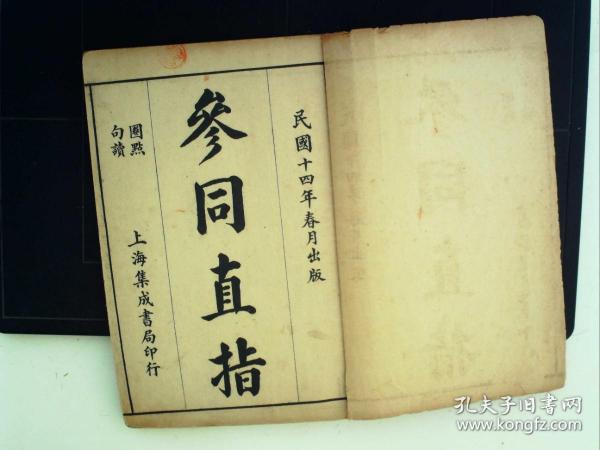 民國十四年春月出版
參同直指
圈點
句讀
上海集成書局印行
孔夫子旧书网
www.kongfz.com